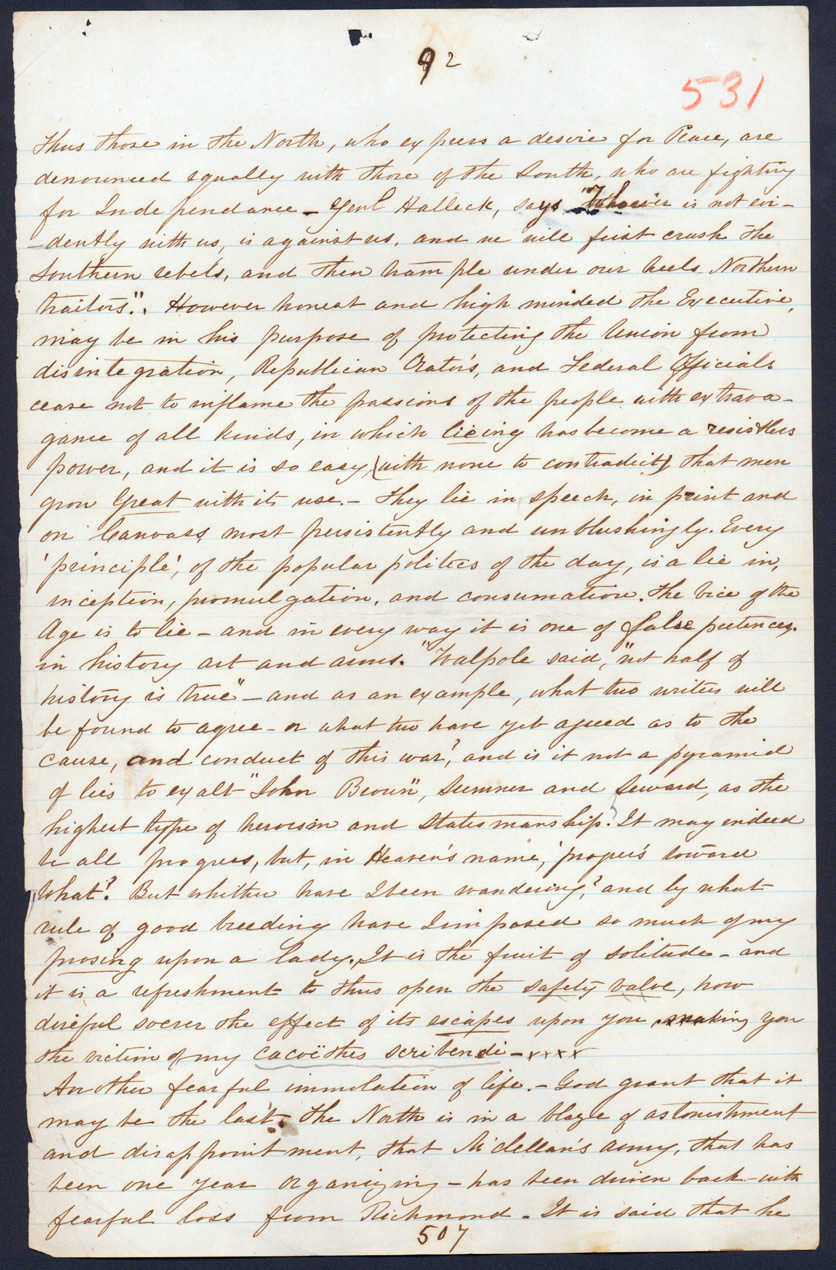 92
531
Thus those in the North, who express a desire for Peace, are
denounced equally with those of the South, who are fighting
for Independence - Genl Halleck, says "Whoever is not evi-
-dently with us, is against us, and we will first crush the
Southern rebels, and then trample under our heels Northern
traitors". However honest and high minded the Executive,
may be in his purpose of protecting the Union from
disintegration, Republican Orators, and Federal Officials
cease not to inflame the passions of the people with extrava-
gance of all kinds, in which lieing has become a resistless
power, and it is so easy, (with none to contradict) that men
grow Great with its use. - They lie in speech, in print and
on Canvass, most persistently and unblushingly. Every
'principle', of the popular politics of the day, is a lie in,
inception, promulgation, and consumation. The vice of the
Age is to lie - and in every way it is one of false pretences.
in history art and arms. "Walpole said, "not half of
history is true" - and as an example, what two writers will
be found to agree - or what two have yet agreed as to the
cause, and conduct of this war? and is it not a pyramid
of lies to exalt "John Brown", Sumner and Seward, as the
highest type of heroism and statesmanship? It may indeed
be all progress, but, in Heaven's name, 'progress toward
what'? But whither have I been wandering? and by what
rule of good breeding have I imposed so much of my
prosing upon a lady. It is the fruit of solitude - and
it is a refreshment to thus open the safety valve, how
direful soever the effect of its escapes upon you making you
the victim of my cacoëthes scribendi - xxxx
Another fearful immolation of life. - God grant that it
may be the last. The North is in a blaze of astonishment
and disappointment, that McClellan's army, that has
been one year organizing - has been driven back with
fearful loss from Richmond - It is said that he
507